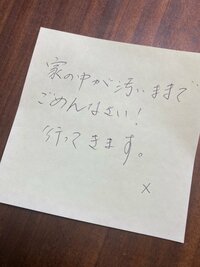 家の中が汚いままで
ごめんなさい!
行ってきます。
x